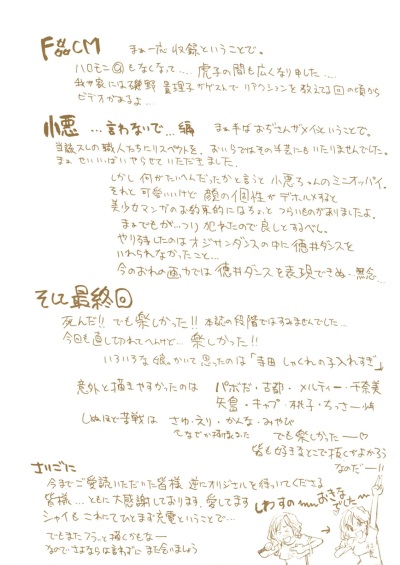 F CM まぁ一応収録ということで。
ハロモニ@もなくなって.... 虎子の間も広くなりました....
我が家には磯野貴理子がゲストで リアクションを教えてる回の頃から
ビデオがあるよ...
小悪 ...言わないで...編 まぁ手ばおぢさんがメイということで。
当該スレの職人たちにリスペクトを、おいらではその半芸にもいたりませんでした。
まぁ せいいっぱいやらせていただきました。
しかし 何がたいへんだったかと言うと 小悪ちゃんのミニオッパイ。
それと 可愛いいけど 顔の個性がデホルメすると
美少女マンガのお約束的になるちょっとつらいものがありましたよ。
まぁでもがっつり 犯れたので良しとするべし。
やり残したのはオジサンダンスの中に徳井ダンスを
いれられなかったこと...
今のおれの画力では 徳井ダンスを表現できぬ...無念...
そして最終回
死んだ!! でも楽しかった!! 本誌の段階ではすみませんでした...
今回も直し切れてへんけど... 楽しかった!!
いろいろな娘。かいて思ったのは「寺田 しゃくれの子入れすぎ」
意外と描きやすかったのは パポだ・古都・メルティー・千奈美
矢島・キャプ・桃子・ちっさー
しぬほど苦戦は さゆ・えり・かんな・みやび
でも楽しかったー♡
皆も好きなとこで抜くがよかろう
なのだー!!
さいごに
今までご愛読いただいた皆様 逆にオリジさんを待っていてくださる
皆様...ともに大感謝しております。愛してます
シャイも これにてひとまず充電ということで...
でもまたフラっと描くかもなー
なのでさよならは言わずに また会いましょう
しわすの
おきな
でしたー